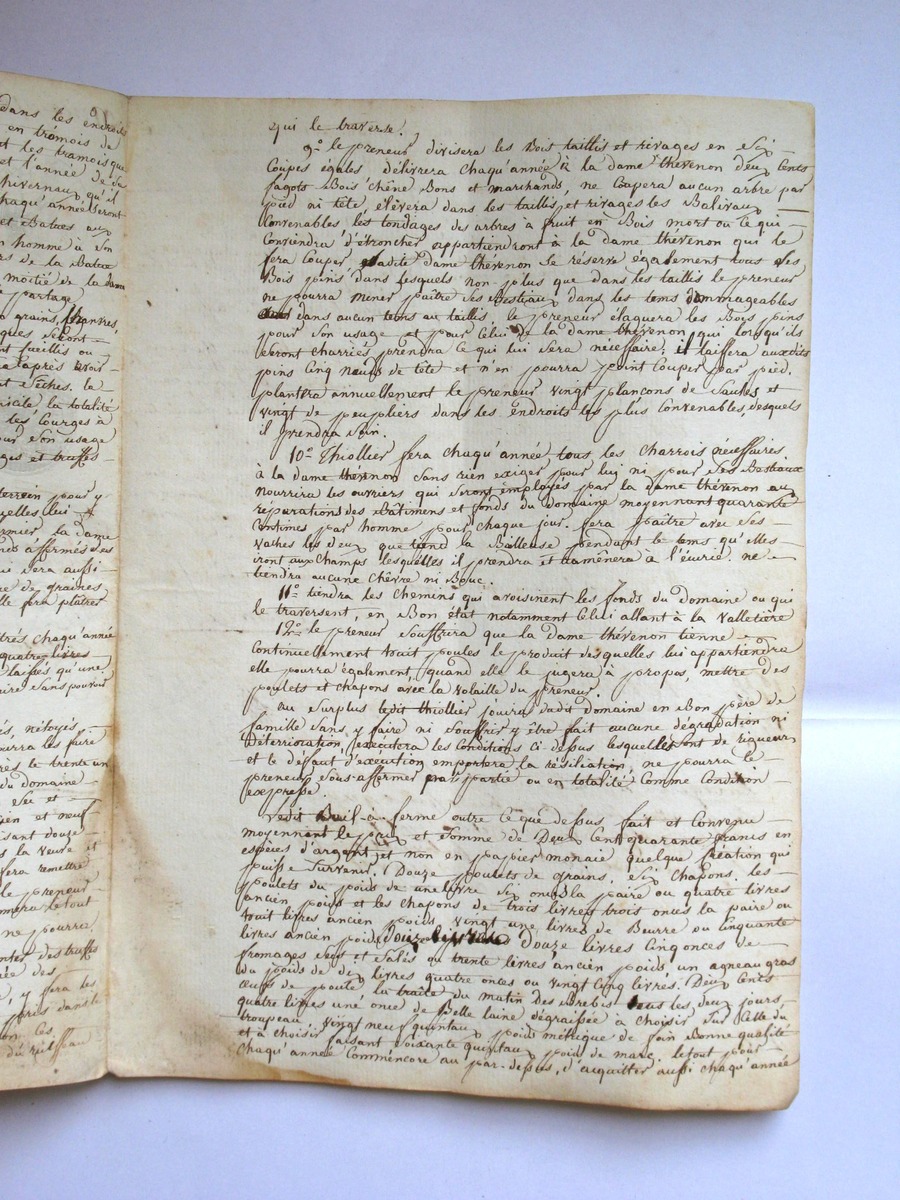 dans les endroits
en trémois de
et les tramois que
et l'année de sa
hivernaux qu'il
chaqu'année seront
et Batues aux
un homme à son
de la Batue
moitié de la dame
partage
grains, chanvres,
seront
cueillis ou
après avoir
séches. la
la totalité
les Courges à
pour son usage
et truffes
terrein pour y
la Dame
affermés et
sera aussi
de graines
fera plâtrer
chaqu'année
quatre livres
laissés qu'une
sans pouvoir
nétoyés
pourra les faire
le trente un
du domaine
sei et
et neuf
faisant douze
la veuve et
fera remettre
le preneur
le tout
ne pourra
des truffes
des
y fera les
près dans le
les
du ruisseau
qui le traverse.
9o. le preneur divisera les Bois taillis et rivages en Six
Coupes égales délivrera chaqu'année à la dame thévenon deux Cents
fagots Bois chêne Bons et marchands, ne Coupera aucun arbre par
pied ni tête, elèvera dans les taillis, et rivages les Balivaux
Convenables, les tondages des arbres à fruit en Bois mort ou ce qui
Conviendra d'étroncher appartiendront à la dame thévenon qui le
fera Couper ladite dame thévenon se réserve également tous Ses
Bois pins dans lesquels non plus que dans les taillis le preneur
ne pourra mener paître Ses Bestiaux dans les tems dommageables
dans aucun tems au taillis. le preneur élaguera les Bois pins
pour Son usage et pour Celui de la dame thévenon qui lorsqu'ils
Seront charriés prendra Ce qui lui Sera nécessaire, il laissera auxdits
pins Cinq nœuds de tête et n'en pourra point Couper par pied.
plantera annuellement le preneur vingt plançons de Saules et
vingt de peupliers dans les endroits les plus Convenables, desquels
il prendra Soin.
10o. Thiollier fera chaqu'année tous les Charrois nécessaires
à la dame thévenon Sans rien exiger pour lui ni pour Ses Bestiaux
nourrira les ouvriers qui Seront employés par la dame thévenon aux
réparations des Bâtimens et fonds du domaine moyennant quarante
Centimes par homme pour chaque jour. fera paître avec Ses
vaches les deux que tiend la Bailleuse pendant le tems qu'elles
iront aux Champs lesquelles il prendra et ramènera à l'écurie. ne
tiendra aucune Chèvre ni Bouc.
11o. tiendra les Chemins qui avoisinent les fonds du Domaine ou qui
le traversent, en Bon état notamment Celui allant à la Valletière
12o. le preneur Souffrira que la dame thévenon tienne
Continuellement huit poules le produit desquelles lui appartiendra
elle pourra également, quand elle le jugera à propos, mettre des
poulets et chapons avec la Volaille du preneur.
au Surplus ledit thiollier jouira dudit domaine en Bon père de
famille Sans y faire ni Souffrir y être fait aucune dégradation ni
Détérioration, executera les Conditions Ci-dessus lesquelles sont de rigueur
et le défaut d'exécution emportera la résiliation, ne pourra le
preneur Sous-affermer par partie ou en totalité Comme Condition
expresse.
Ledit Bail à ferme outre Ce que dessus fait et Convenu
moyennant le prix et Somme de Deux Cent quarante francs en
espèces d'argent et non en papier monaié quelque Création qui
puisse Survenir. Douze poulets de grains, Six Chapons, les
poulets du poids de une livre Six onces la paire ou quatre livres
ancien poids et les Chapons de trois livres trois onces la paire ou
huit livres ancien poids, vingt une livres de Beurre ou Cinquante
livres ancien poids Douze livres Cinq onces de
fromages Secs et Salés ou trente livres ancien poids, un agneau gras
du poids de dix livres quatre onces ou vingt Cinq livres. Deux Cents
œufs de poule la traite du matin des Brebis tous les deux jours,
quatre livres une once de Belle laine dégraissée à choisir Sur Celle du
troupeau vingt neuf quintaux poids métrique de foin Bonne qualité
et à choisir faisant Soixante quintaux poids de marc. le tout pour
Chaqu'année Commencore au par-dessus, d'acquitter aussi chaqu'année